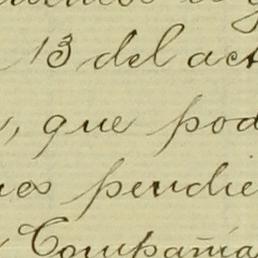 13 del act
, que pod
es pendie
Compañia